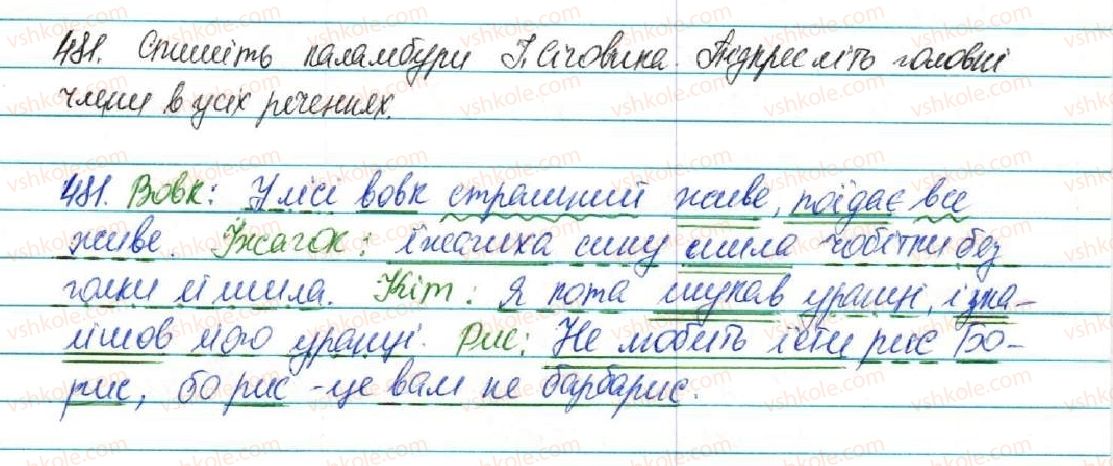 481. Спишіть каламбури І. Січовика. Підкресліть головні
члени в усіх реченнях.
481. Вовк: У лісі вовк страшний живе, поїдає все
живе. Їжачок: їжачиха сину шила чобітки без
голки й шила. Кіт: Я кота шукав уранці, і зна-
йшов його уранці. Рис: Не любить їсти рис Бо-
рис, бо рис - це вам не барбарис.